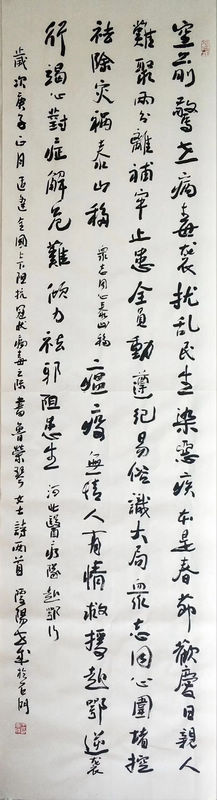 空前驚世病毒襲擾乱民生染惡疾本是春節歡慶日親人
難聚兩分離補牢止患全員動遵紀易俗識大局眾志同心圍堵控
祛除灾禍泰山移 眾志同心泰山移 瘟疫無情人有情救援赴鄂逆袭
行竭心對症解危難傾力祛邪阻患生 河北醫療隊赴鄂行
歲次庚子正月適逢全國上下阻抗冠狀病毒之際書魯榮琴女士詩兩首